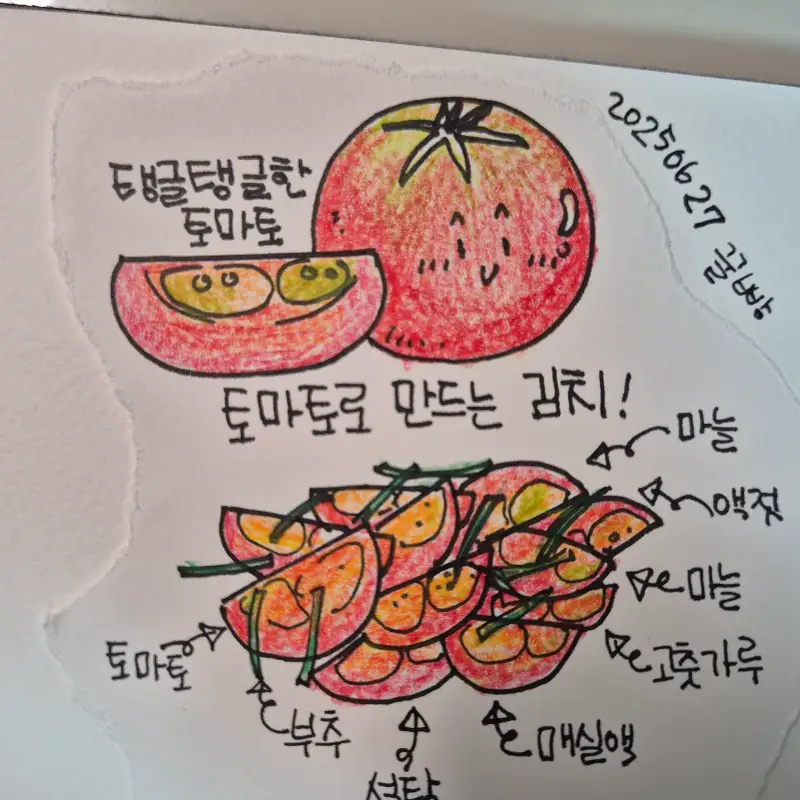 20250627 꿀빵
탱글탱글한
토마토
토마토로 만드는 김치!
마늘
액젓
마늘
고춧가루
토마토
부추
매실액
설탕